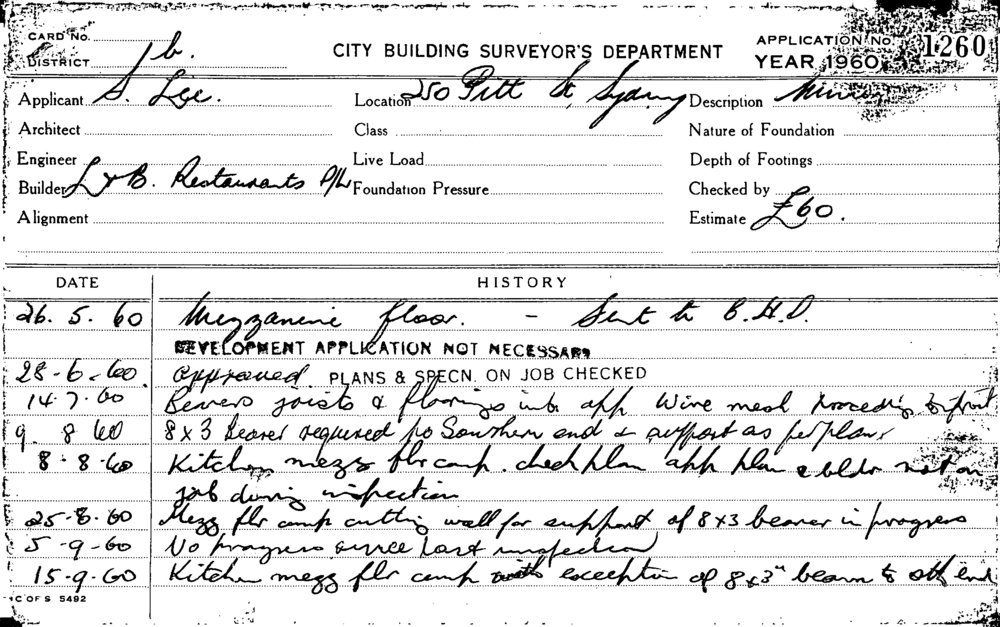 CARD No.
DISTRICT 1b.
CITY BUILDING SURVEYOR'S DEPARTMENT
APPLICATION No. 1260
YEAR 1960
Applicant S. Lee. Location 250 Pitt St, Sydney Description Minor
Architect Class Nature of Foundation
Engineer Live Load Depth of Footings
Builder L & B. Restaurants P/L Foundation Pressure Checked by
Alignment Estimate £60.
DATE HISTORY
26. 5. 60 Mezzanine floor. - Sent to C.H.D.
DEVELOPMENT APPLICATION NOT NECESSARY
28-6-60. approved. PLANS & SPECN. ON JOB CHECKED
14.7.60 Bearers joists & flooring into app Wire mesh proceeding to front
9. 8 60 8x3 bearer required to Southern end & support as per plans
8-8-60 Kitchen mezz flr comp. check plan app plan & bldr not on
job during inspection
25-8.60 Mezz flr comp cutting wall for support of 8x3 bearer in progress
5-9-60 No progress since last inspection
15-9-60 Kitchen mezz flr comp with exception of 8x3" beam to sth end
C OF S 5492